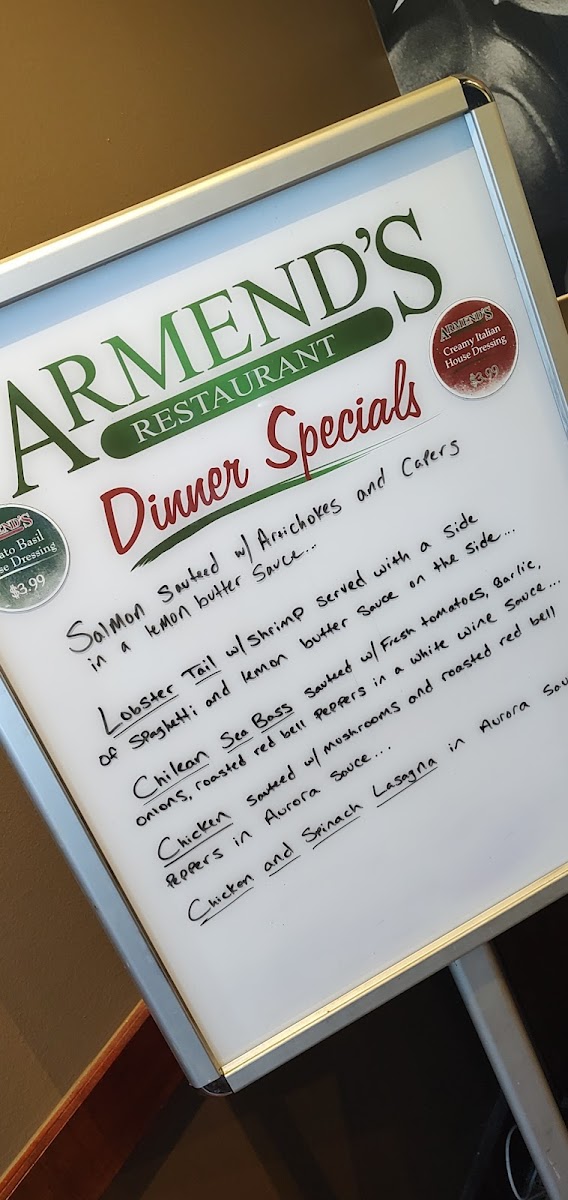 ARMEND'S
RESTAURANT
Dinner Specials
ARMEND'S
Creamy Italian
House Dressing
$3.99
Basil
Dressing
$3.99
Salmon sauteed w/ Araichokes and Capers
in a lemon butter sauce...
Lobster Tail w/ shrimp served with a side
of spaghetti and lemon butter sauce on the side...
Chilean Sea Bass sauteed w/ Fresh tomatoes, Garlic,
onions, roasted red bell peppers in a white wine sauce...
Chicken sauteed w/ mushrooms and roasted red bell
peppers in Aurora sauce...
Chicken and Spinach Lasagna in Aurora